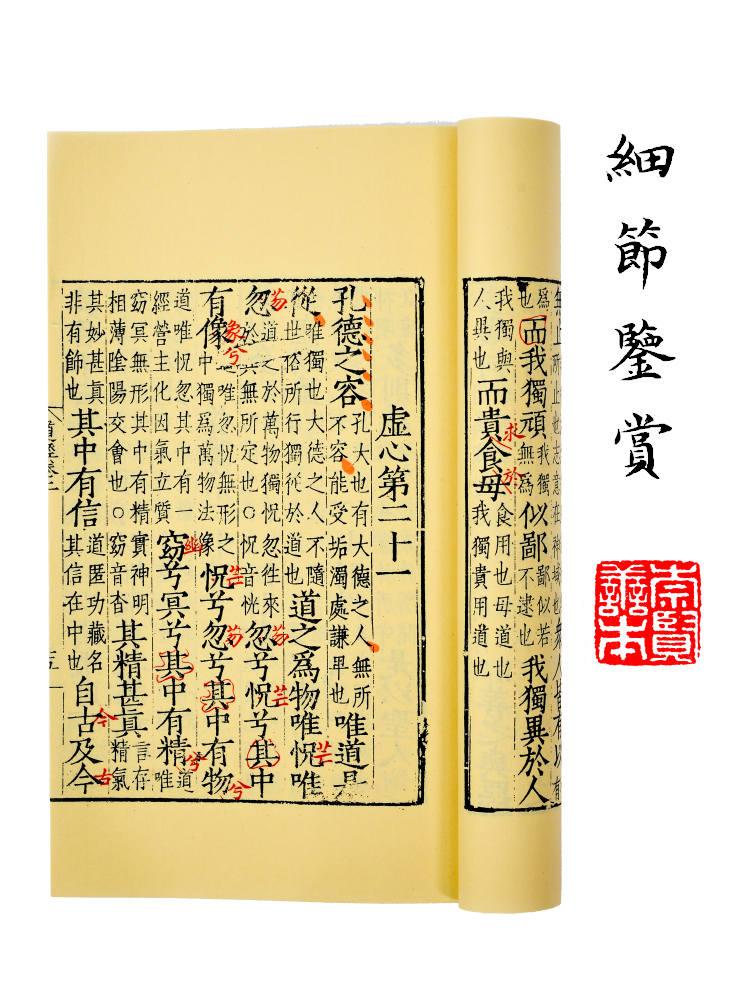 細節鑒賞
崇賢善本
為也而我獨頑我獨無為似鄙鄙似若不逮也我獨異於人
我獨與人異也而貴食母食用也母道也我獨貴用道也
求於
虛心第二十一
孔德之容孔大也有大德之人無所不容能受垢濁處謙卑也唯道是
從唯獨也大德之人不隨世俗所行獨從於道也道之爲物唯怳唯
芒
忽道之於萬物獨怳忽徃來於其無所定也○怳音恍忽兮怳兮其中
芴芴芒
有像道唯忽怳無形之中獨爲萬物法像怳兮忽兮其中有物
象兮芒芴兮
道唯怳忽其中有一經營主化因氣立質窈兮冥兮其中有精道唯
幽兮
窈冥無形其中有精實神明相薄陰陽交會也○窈音杳其精甚真言存精氣
其妙甚真非有飾也其中有信道匿功藏名其信在中也自古及今
今古